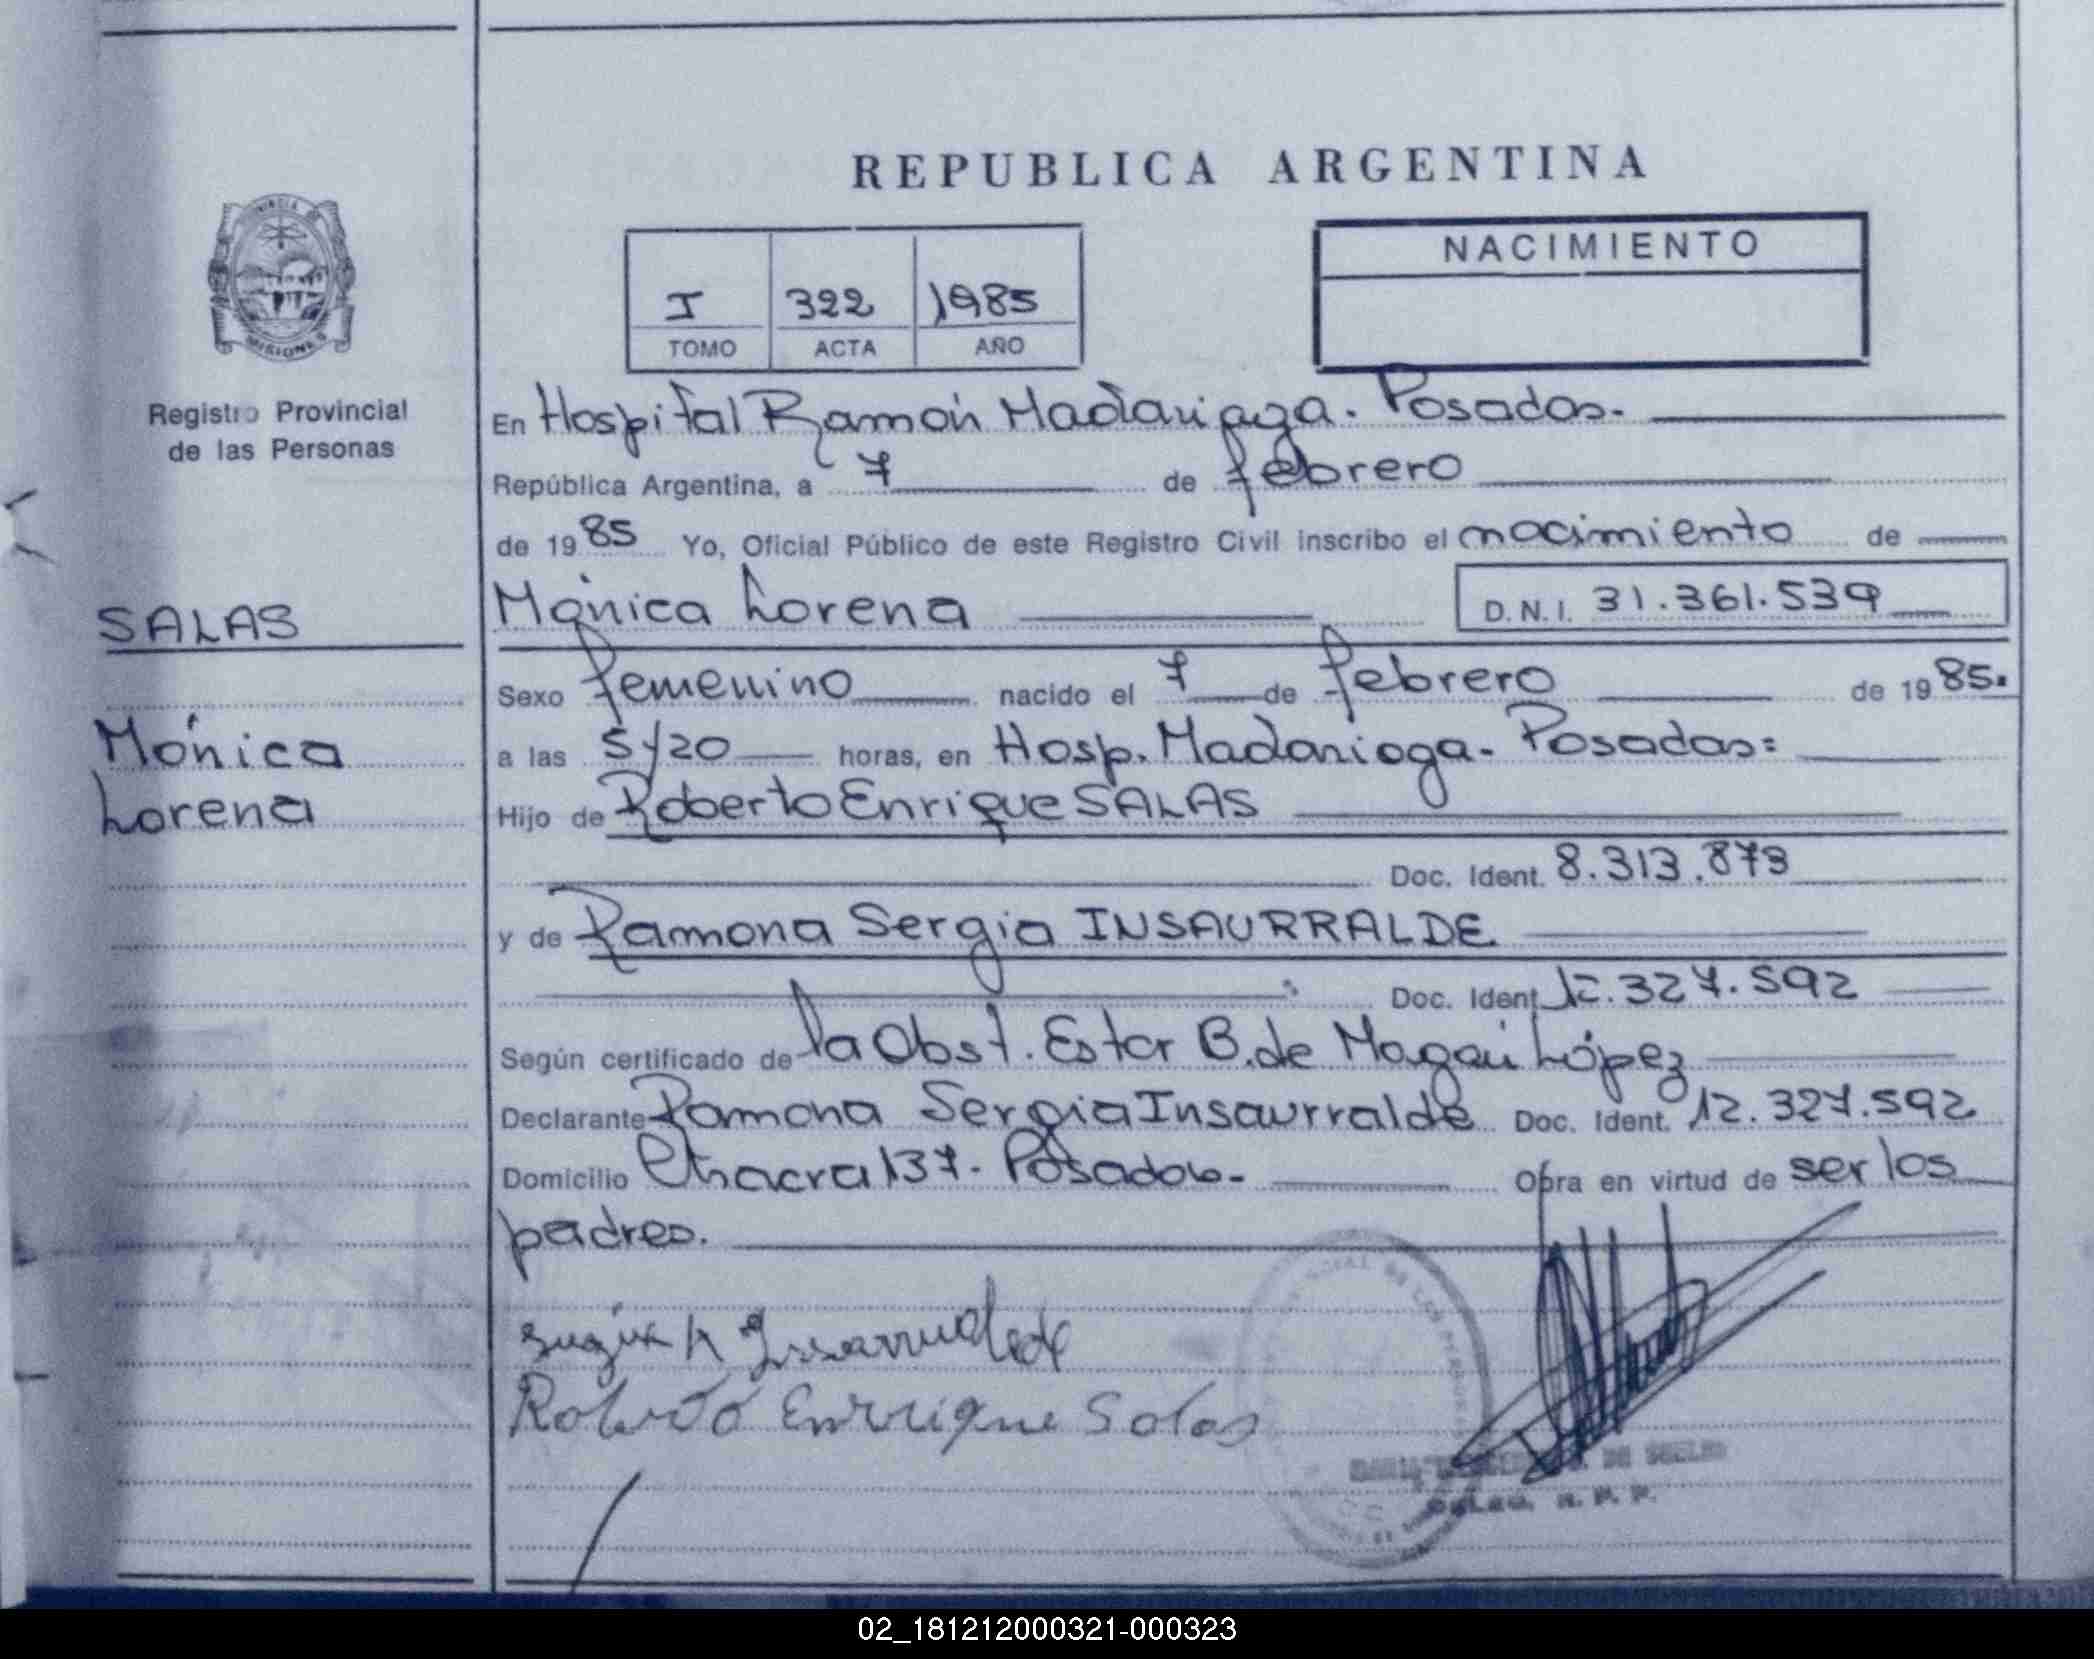 REPUBLICA ARGENTINA
PROVINCIA DE
MISIONES
Registro Provincial
de las Personas
I 322 1985
TOMO ACTA AÑO
NACIMIENTO
En Hospital Ramón Madariaga. Posadas.
República Argentina, a 7 de febrero
de 1985 Yo, Oficial Público de este Registro Civil inscribo el nacimiento de
SALAS
Mónica Lorena D.N.I. 31.361.539
Sexo femenino nacido el 7 de febrero de 1985.
Mónica
a las 5/20 horas, en Hosp. Madariaga. Posadas=
Lorena
Hijo de Roberto Enrique SALAS
Doc. Ident. 8.313.873
y de Ramona Sergia INSAURRALDE
Doc. Ident. 12.327.592
Según certificado de la Obst. Ester B. de López
Declarante Ramona Sergia Insaurralde Doc. Ident. 12.327.592
Domicilio Chacra 137. Posadas. Obra en virtud de ser los
padres.
Insaurralde
Roberto Enrique Salas
DE
R. P. P.
02_181212000321-000323